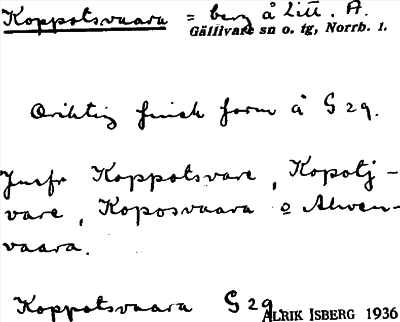 Koppotsvaara = berg å Litt. A.
Gällivare sn o. tg, Norrb. l.
Oriktig finsk form å G 29.
Jmfr Koppotsvare, Kopotj-
vare, Koposvaara o Ahven-
vaara.
Koppotsvaara G 29.
ALRIK ISBERG 1936